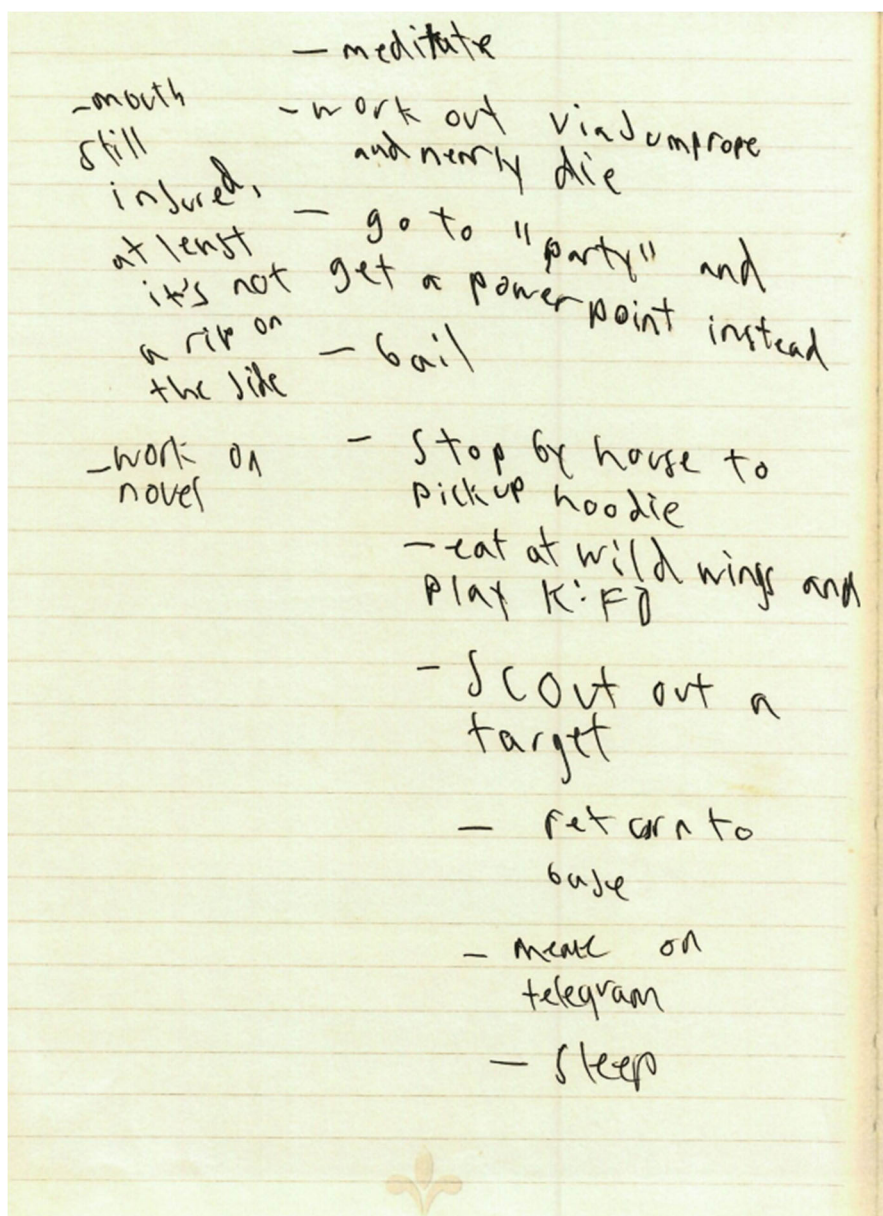 - meditate
- work out via Jumprope
and nearly die
- go to "party" and
get a powerpoint instead
- bail
- Stop by house to
pick up hoodie
- eat at wild wings and
play K:FD
- Scout out a
target
- return to
base
- meme on
telegram
- sleep
- mouth
still
injured,
at least
it's not
a rip on
the side
- work on
novel